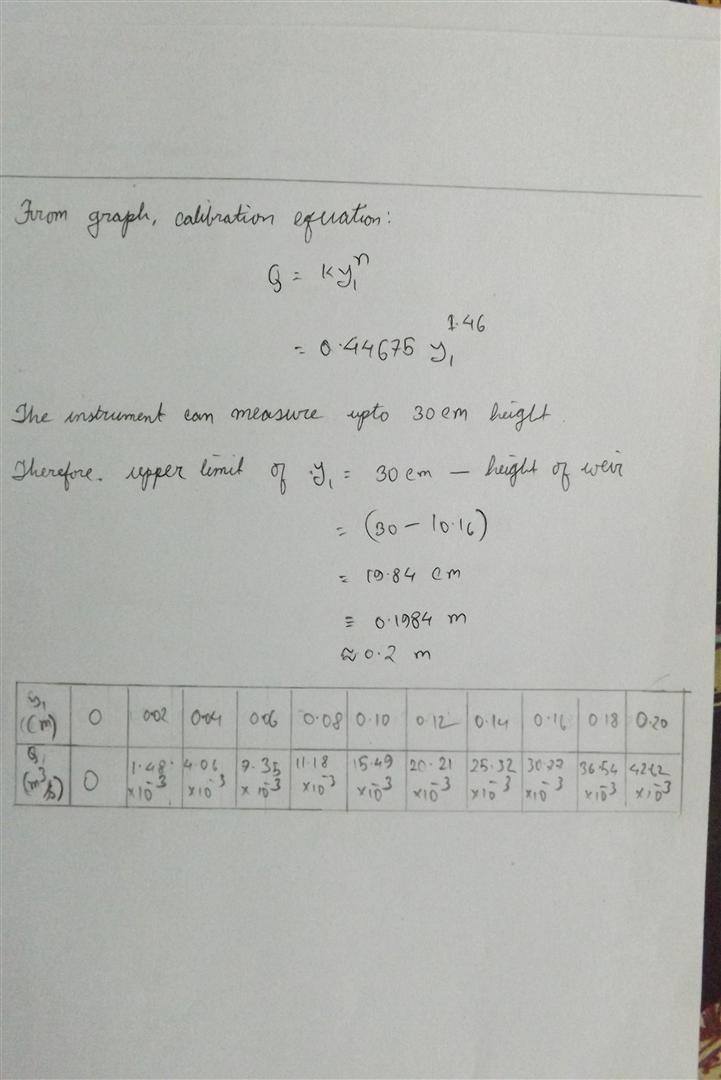 From graph, calibration equation:
Q = Ky₁ⁿ
= 0.44675 y₁^1.46
The instrument can measure upto 30 cm height.
Therefore, upper limit of y₁ = 30 cm – height of weir
= (30 – 10.16)
= 19.84 cm
= 0.1984 m
≈ 0.2 m
y₁ (m) 0 0.02 0.04 0.06 0.08 0.10 0.12 0.14 0.16 0.18 0.20
(m³/s) 0 1.48 ×10⁻³ 4.06 ×10⁻³ 7.35 ×10⁻³ 11.18 ×10⁻³ 15.49 ×10⁻³ 20.21 ×10⁻³ 25.32 ×10⁻³ ×10⁻³ 36.54 ×10⁻³ ×10⁻³